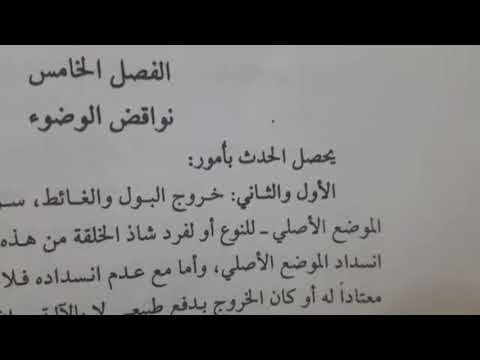 الفصل الخامس
نواقض الوضوء
يحصل الحدث بأمور:
الأول والثاني: خروج البول والغائط،
الموضع الأصلي ـ للنوع أو لفرد شاذ الخلقة من هذه
انسداد الموضع الأصلي، وأما مع عدم انسداده فلا
معتاداً له أو كان الخروج بدفع طبيعي لا بالآلة